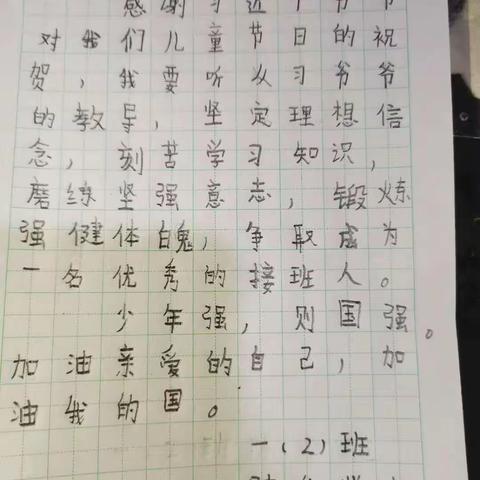 感谢习近平爷爷
对我们儿童节日的祝
贺，我要听从习爷爷
的教导，坚定理想信
念，刻苦学习知识，
磨练坚强意志，锻炼
强健体魄，争取成为
一名优秀的接班人。
少年强，则国强。
加油亲爱的自己，加
油我的国。
一（2）班